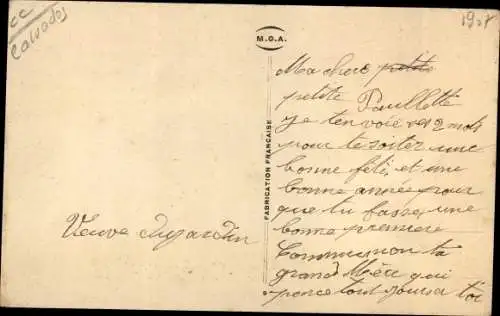 cc
Calvados
1907
M.D.A.
FABRICATION FRANÇAISE
Ma chere petite
petite Paullette
Je tenvoie ces 2 mots
pour te soiter une
bonne fete, et une
bonne année pour
que tu fasse une
bonne premiere
Communion ta
grand Mère qui
pence tout jours a toi
Veuve Dujardin